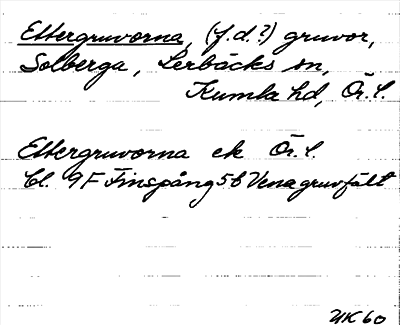 Ettergruvorna, (f.d.?) gruvor,
Solberga, Lerbäcks sn,
Kumla hd, Ör. l.
Ettergruvorna ek Ör. l.
bl. 9F Finspång 5b Vena gruvfält
UK 60